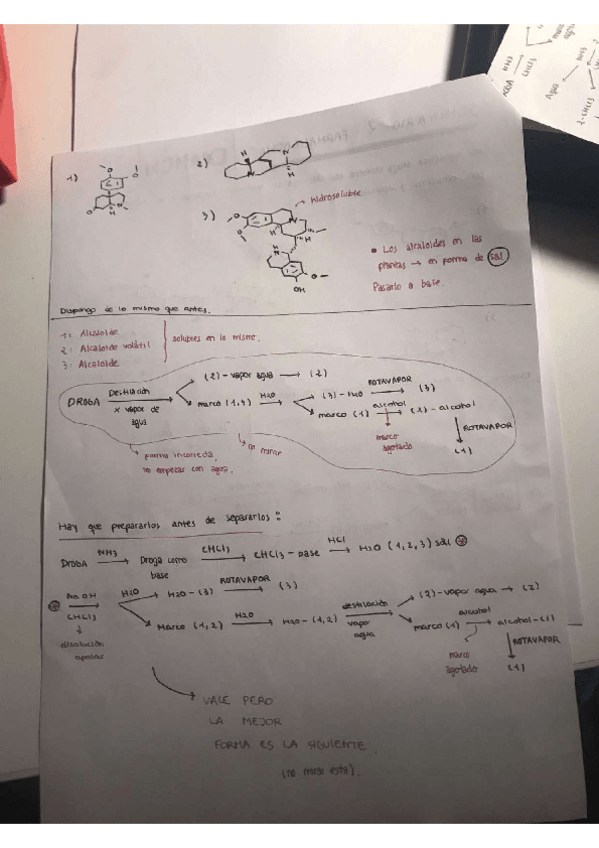 1)
2)
3)
Hidrosoluble
• Los alcaloides en las
plantas → en forma de sal
Pasarlo a base.
Dispongo de lo mismo que antes.
1: Alcaloide
2: Alcaloide volátil
3: Alcaloide
solubles en lo mismo.
DROGA Destilación x vapor de agua
(2) - vapor agua → (2)
marco (1,3) H2O → (3) - H2O ROTAVAPOR → (3)
marco (1) alcohol → (1) - alcohol
marco agotado
ROTAVAPOR
(1)
forma incorrecta.
no empezar con agua.
no mirar
Hay que prepararlos antes de separarlos:
DROGA NH3 → Droga como base CHCl3 → CHCl3 - base HCl → H2O (1,2,3) sal
NaOH
CHCl3
disolución
apolar
H2O → H2O - (3) ROTAVAPOR → (3)
Marco (1,2) H2O → H2O - (1,2) destilación vapor agua
(2) - vapor agua → (2)
marco (1) alcohol → alcohol - (1)
marco agotado
ROTAVAPOR
(1)
VALE PERO
LA MEJOR
FORMA ES LA SIGUIENTE.
(no mirar ésta).
NH3
CHCl3
Agua
NH3